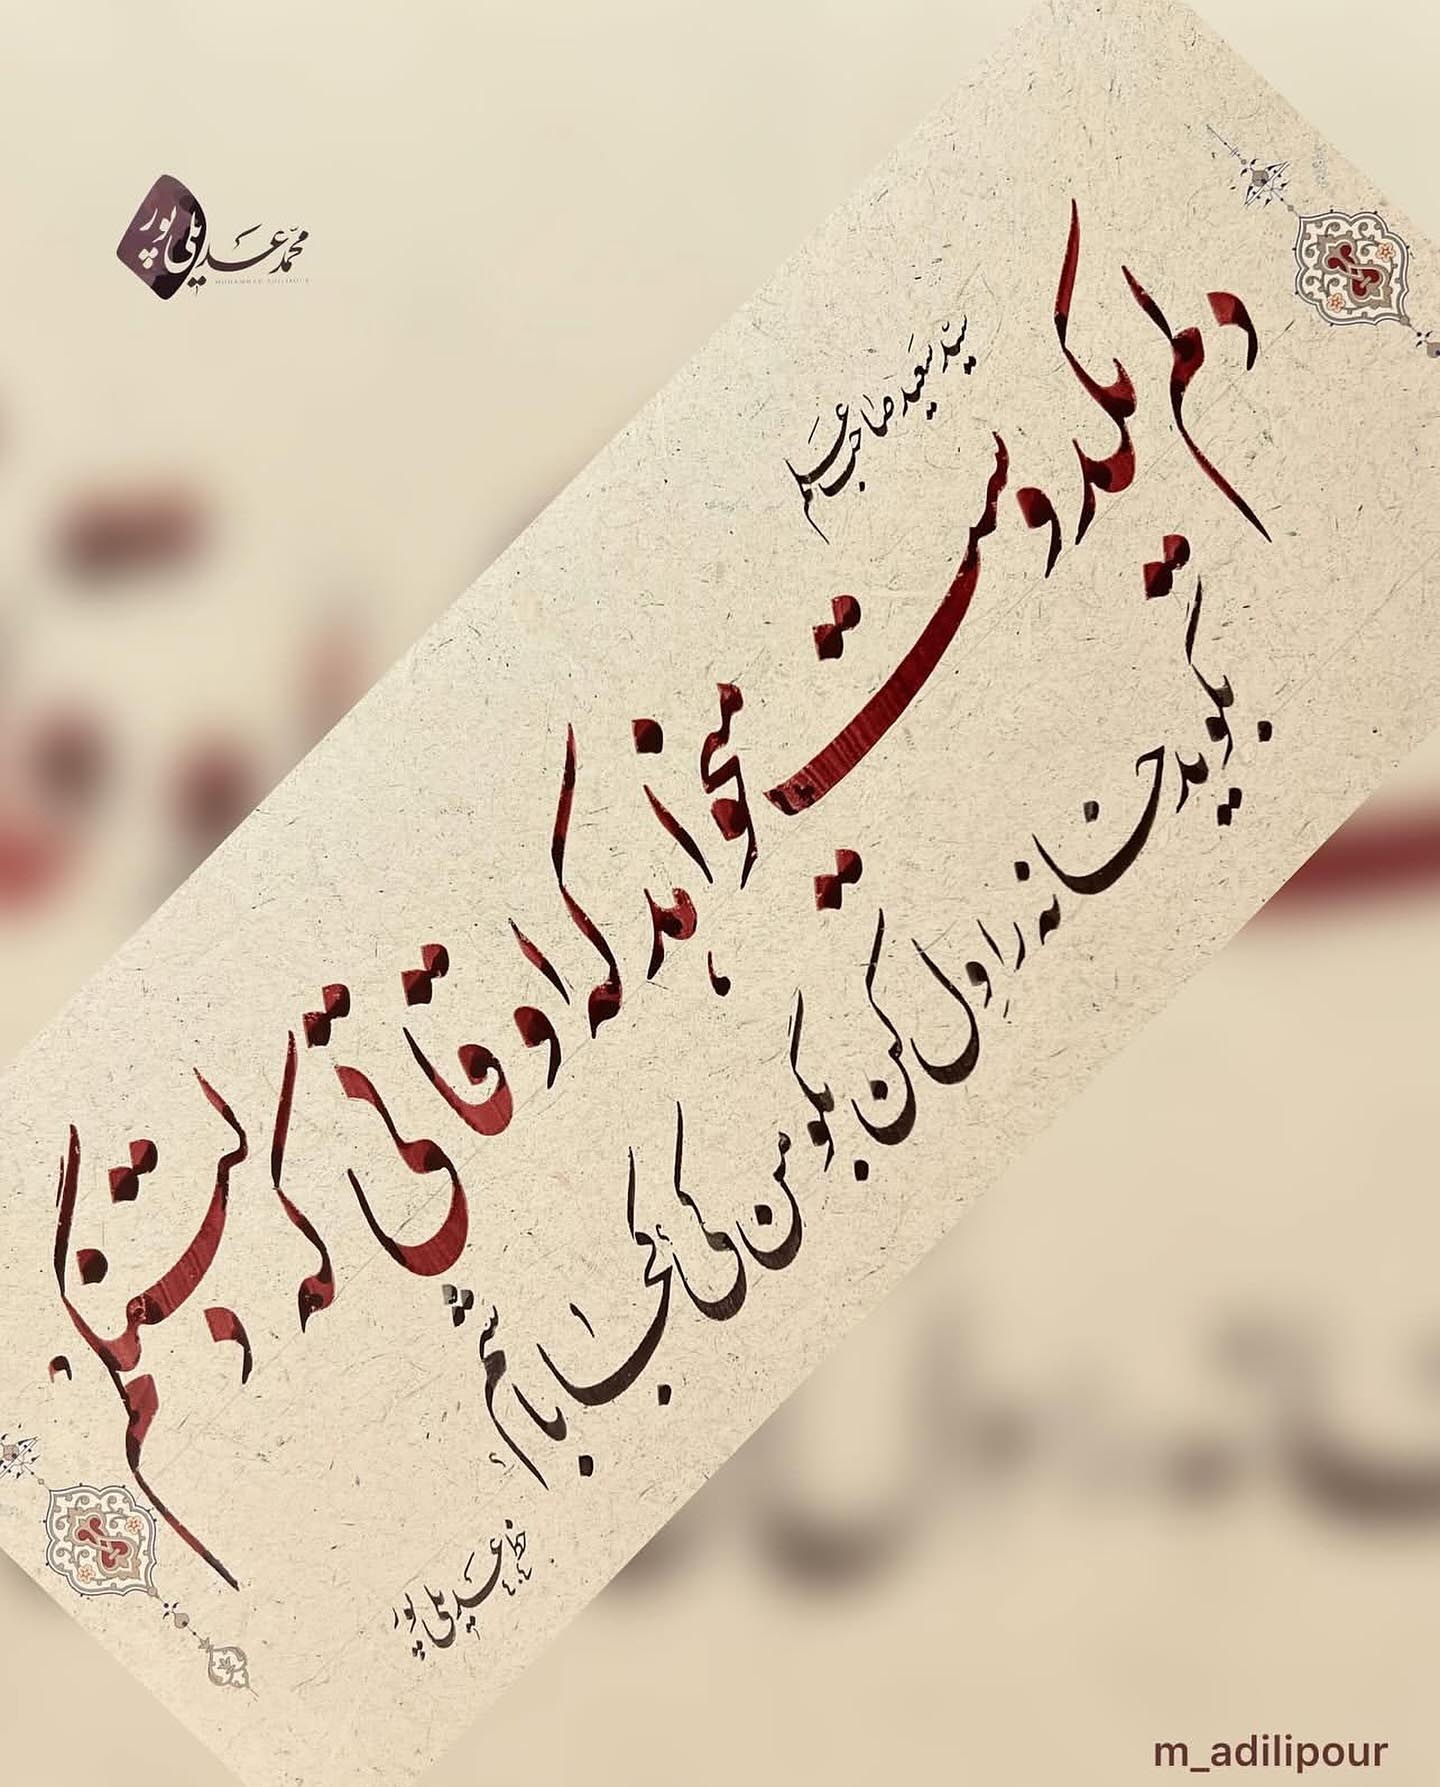 محمد عدیلی پور
MUHAMMAD ADILIPOUR
دلم یکدوست میخواهد که اوقاتی که دلتنگم
سید سعید صاحب علم
بگوید خانه را ول کن بگو من کی کجا باشم
خط عدیلی پور
m_adilipour